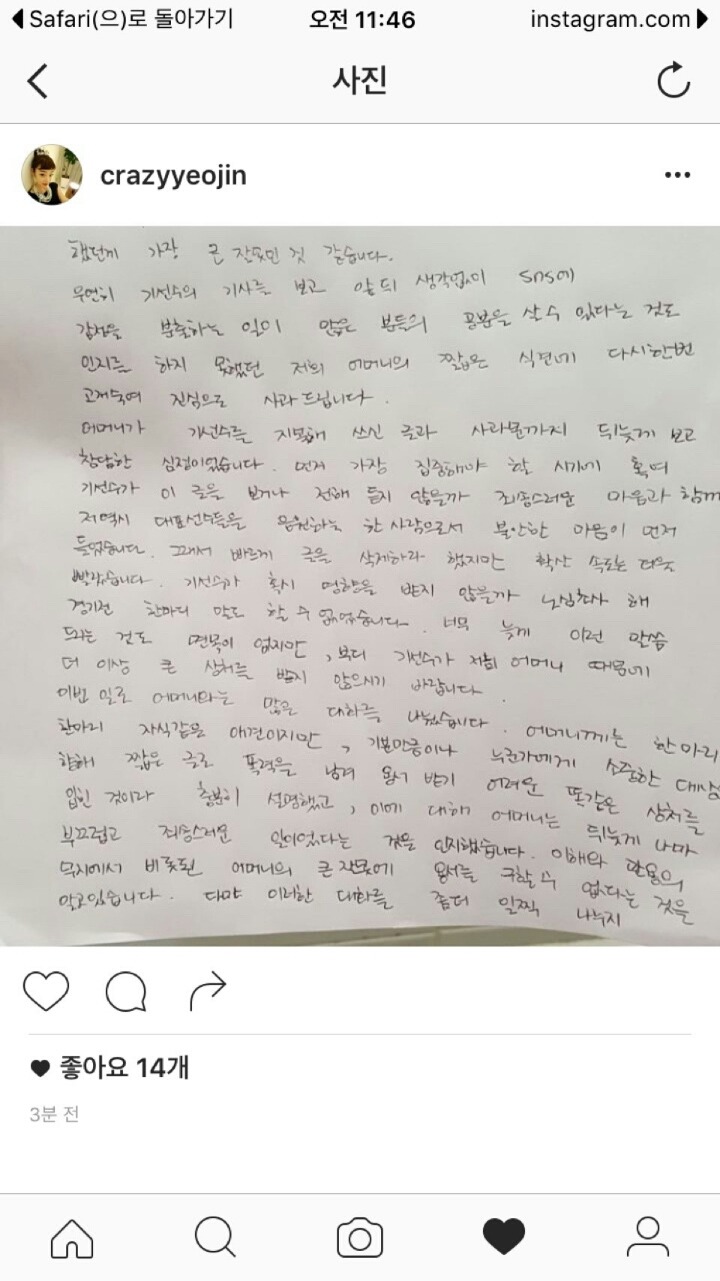 Safari(으)로 돌아가기
오전 11:46
instagram.com
사진
crazyyeojin
했던게 가장 큰 잘못인 것 같습니다.
우연히 기선수의 기사를 보고 앞뒤 생각없이 SNS에
감정을 분출하는 일이 많은 분들의 공분을 살 수 있다는 것도
인지를 하지 못했던 저희 어머니의 짧은 식견에 다시한번
고개숙여 진심으로 사과드립니다.
어머니가 기선수를 지목해 쓰신 글과 사과문까지 뒤늦게 보고
참담한 심정이었습니다. 먼저 가장 집중해야 할 시기에 혹여
기선수가 이 글을 보거나 전해 듣지 않을까 죄송스러운 마음과 함께
저역시 대표선수들을 응원하는 한 사람으로서 불안한 마음이 먼저
들었습니다. 그래서 빠르게 글을 삭제하라 했지만 확산 속도는 더욱
빨랐습니다. 기선수가 혹시 영향을 받지 않을까 노심초사 해
경기전 한마디 말도 할 수 없었습니다. 너무 늦게 이런 말씀
드리는 것도 면목이 없지만, 부디 기선수가 저희 어머니 때문에
더 이상 큰 상처를 받지 않으시기 바랍니다.
이번 일로 어머니와는 많은 대화를 나눴습니다. 어머니께는 한마리
한마리 자식같은 애견이지만, 기본만큼이나 누군가에게 소중한 대상
향해 짧은 글로 폭력을 남겨 용서 받기 어려운 똑같은 상처를
입힌 것이라 충분히 설명했고, 이에 대해 어머니는 뒤늦게 나마
부끄럽고 죄송스러운 일이었다는 것을 인지했습니다. 이해와 관용의
무지에서 비롯된 어머니의 큰 잘못에 용서를 구할 수 없다는 것을
알고있습니다. 다만 이러한 대화를 좀더 일찍 나누지
좋아요 14개
3분 전